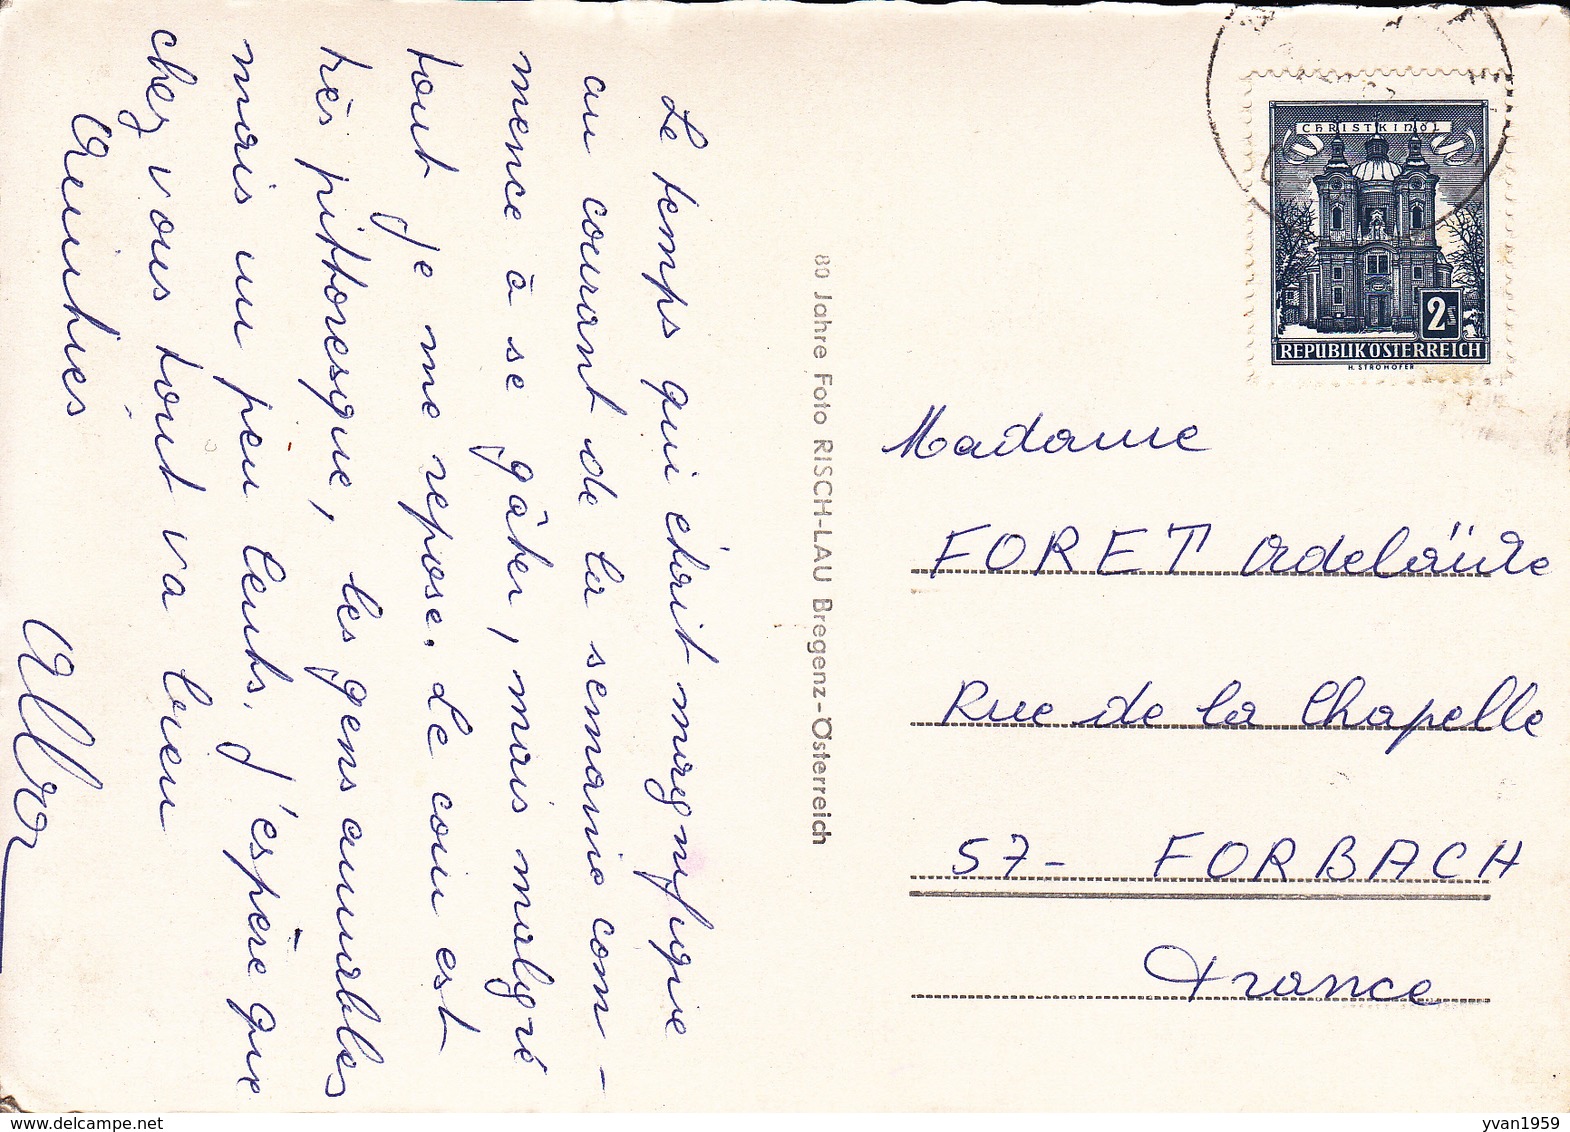 Le temps qui était magnifique
au courant de la semaine com-
mence à se gâter, mais malgré
tout je me repose. Le coin est
très pittoresque, les gens aimables
mais un peu lents. J'espère que
chez vous tout va bien
Amitiés
80 Jahre Foto RISCH-LAU Bregenz-Österreich
CHRISTKINDL
2s
REPUBLIK ÖSTERREICH
H. STROHOFER
Madame
FORET Adelaïde
Rue de la Chapelle
57- FORBACH
France
delcampe.net
yvan1959